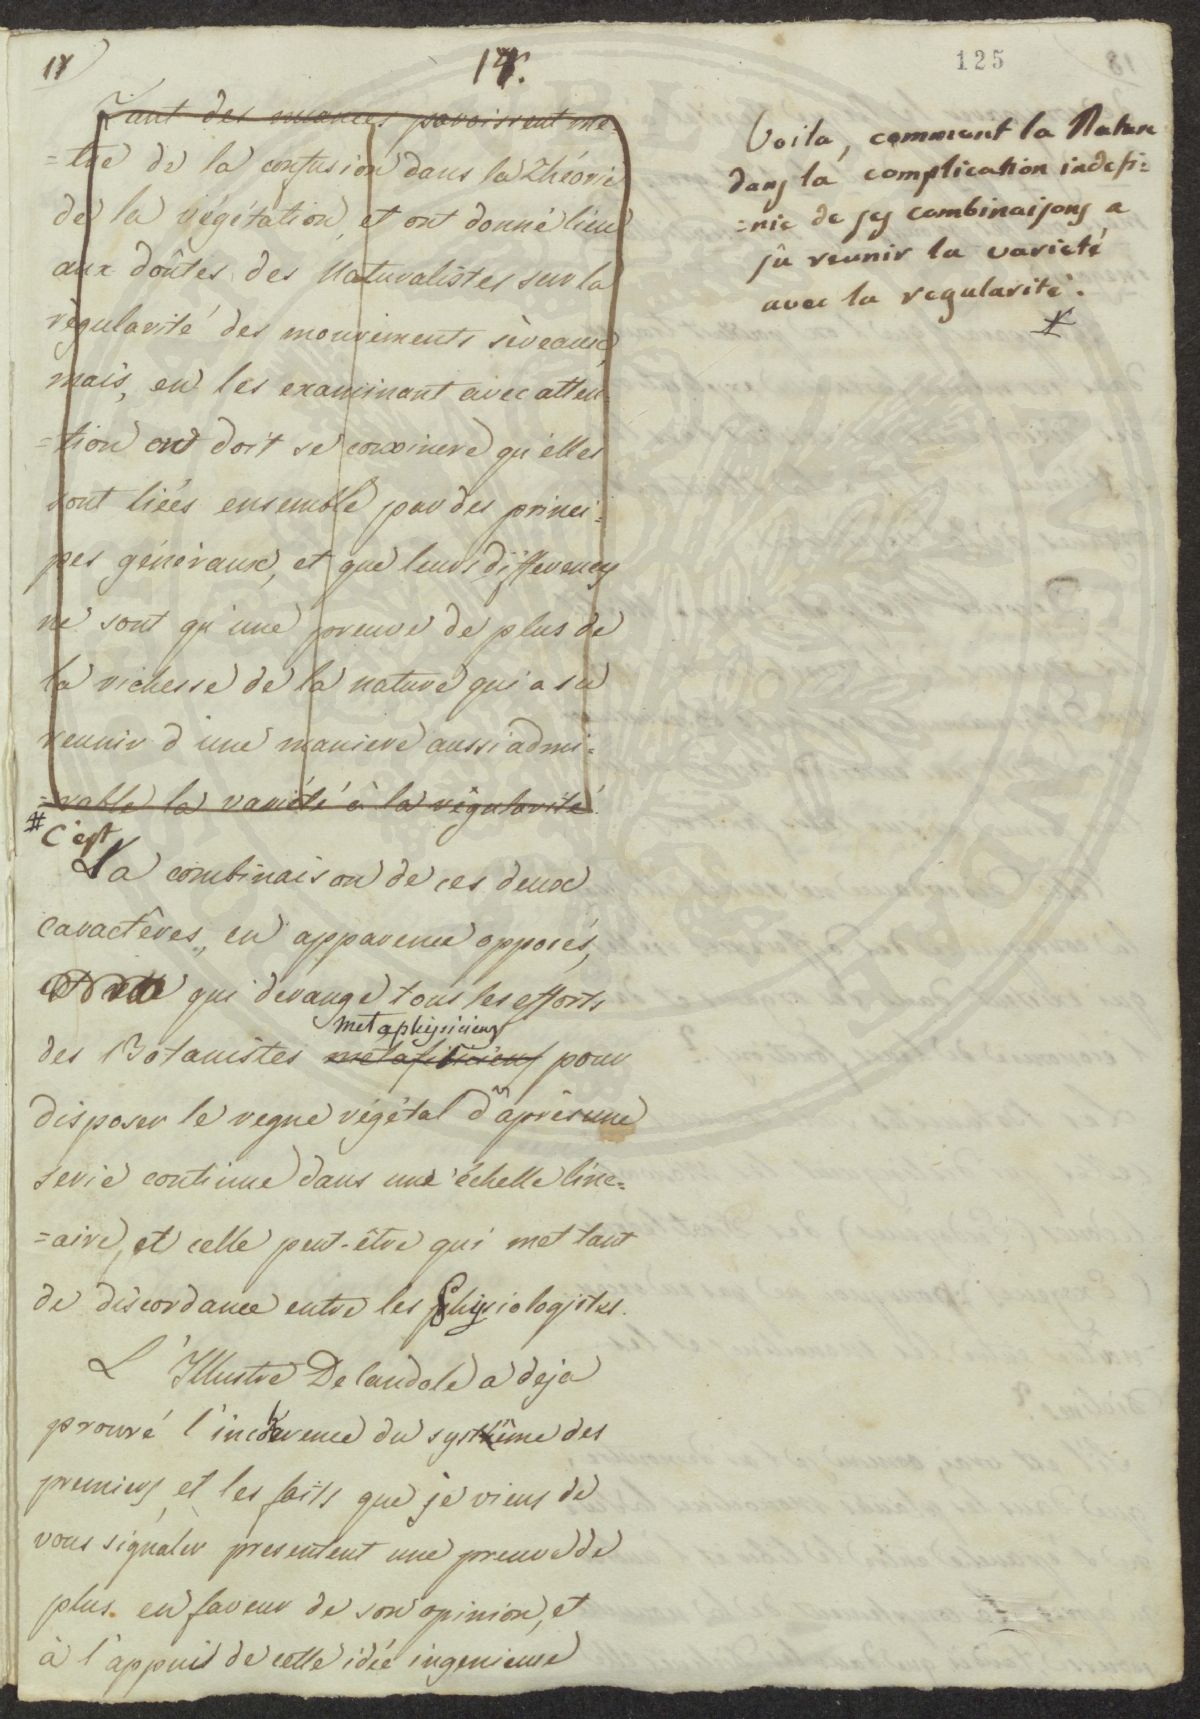 18
17.
125
Tant des nuances paroissent me-
=tre de la confusion dans la Théorie
de la végétation, et ont donné lieu
aux doûtes des Naturalistes sur la
règularité des mouvements sèveaux,
mais, en les examinant avec atten
=tion on doit se convincre qu'elles
sont liées ensemble par des princi=
pes géneraux, et que leurs differences
ne sont qu'une preuve de plus de
la richesse de la nature qui a su
reunir d'une maniere aussi admi=
=rable la varieté à la règularité.
Voila, comment la Nature
dans la complication indefi=
=nie de ses combinaisons a
sû reunir la varieté
avec la regularité.
#
# C'est
La combinaison de ces deux
caractêres, en apparence opposés,
qui derange tous les efforts
metaphisiciens
des Botanistes metafisiciens pour
disposer le regne végétal d'après une
serie continue dans une échelle line=
=aire, et celle peut-être qui met tant
de discordance entre les Physiologistes.
L'Illustre De Candole a deja
prouvé l'incoherence du systême des
premiers, et les faits que je viens de
vous signaler presentent une preuve de
plus en faveur de son opinion, et
à l'appui de cette idée ingenieuse